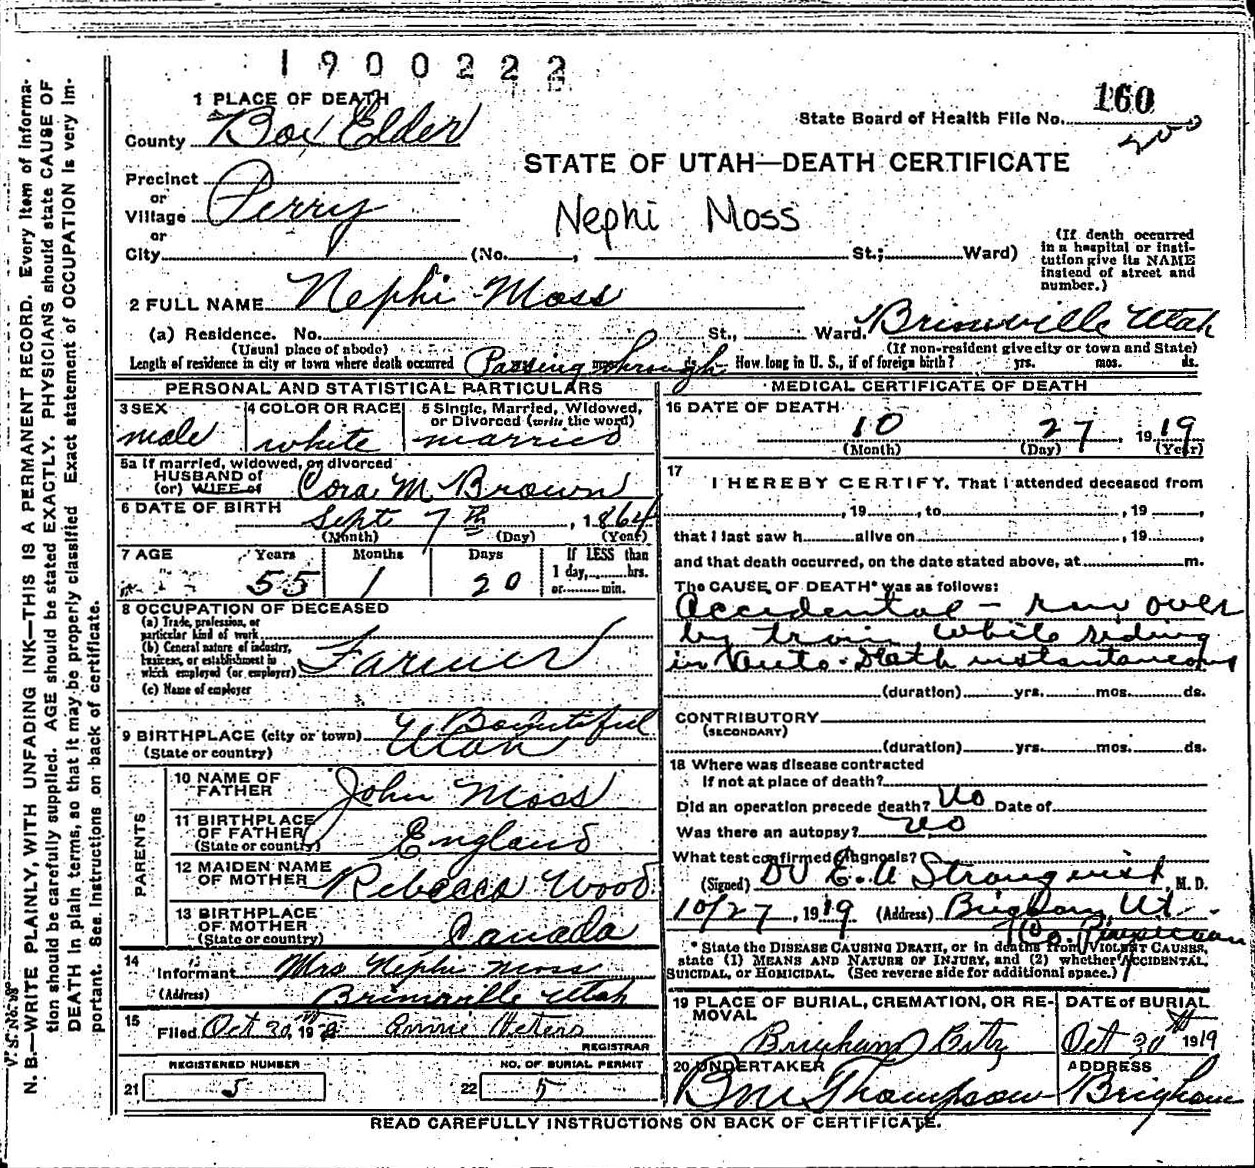 1900222
1 PLACE OF DEATH
County Box Elder
State Board of Health File No. 160
200
STATE OF UTAH—DEATH CERTIFICATE
Precinct
or
Village Perry
or
City (No. , St.; Ward)
Nephi Moss
(If death occurred in a hospital or institution give its NAME instead of street and number.)
2 FULL NAME Nephi Moss
(a) Residence. No. St., Ward.
(Usual place of abode)
Utah
(If non-resident give city or town and State)
Length of residence in city or town where death occurred Passing through yrs. mos. ds. How long in U. S., if of foreign birth? yrs. mos. ds.
PERSONAL AND STATISTICAL PARTICULARS
3 SEX
male
4 COLOR OR RACE
white
5 Single, Married, Widowed, or Divorced (write the word)
married
5a If married, widowed, or divorced
HUSBAND of
(or) WIFE of
Cora M Brown
6 DATE OF BIRTH
Sept 7th, 1864
(Month) (Day) (Year)
7 AGE Years Months Days
If LESS than 1 day, hrs. or min.
55 1 20
8 OCCUPATION OF DECEASED
(a) Trade, profession, or particular kind of work
(b) General nature of industry, business, or establishment in which employed (or employer)
Farmer
(c) Name of employer
9 BIRTHPLACE (city or town) Bountiful
(State or country) Utah
PARENTS
10 NAME OF FATHER John Moss
11 BIRTHPLACE OF FATHER (State or country) England
12 MAIDEN NAME OF MOTHER Rebecca Wood
13 BIRTHPLACE OF MOTHER (State or country) Canada
14
Informant Mrs Nephi Moss
(Address) Utah
15
Filed Oct 30, 19 Annie Peters
REGISTRAR
REGISTERED NUMBER
21 5
NO. OF BURIAL PERMIT
22 5
MEDICAL CERTIFICATE OF DEATH
16 DATE OF DEATH
10 27, 1919
(Month) (Day) (Year)
17
I HEREBY CERTIFY, That I attended deceased from
, 19 , to , 19 ,
that I last saw h alive on , 19 ,
and that death occurred, on the date stated above, at m.
The CAUSE OF DEATH* was as follows:
Accidental - run over
by train while riding
in Auto. Death instantaneous
(duration) yrs. mos. ds.
CONTRIBUTORY
(SECONDARY)
(duration) yrs. mos. ds.
18 Where was disease contracted
If not at place of death?
Did an operation precede death? No Date of
Was there an autopsy? No
What test confirmed diagnosis?
(Signed) Dr E. A Stromquist, M. D.
10/27, 1919 (Address) Brigham, Ut.
* State the DISEASE CAUSING DEATH, or in deaths from VIOLENT CAUSES, state (1) MEANS AND NATURE OF INJURY, and (2) whether ACCIDENTAL, SUICIDAL, or HOMICIDAL. (See reverse side for additional space.)
19 PLACE OF BURIAL, CREMATION, OR REMOVAL
Brigham City
DATE of BURIAL
Oct 30th 1919
20 UNDERTAKER
B M Thompson
ADDRESS
Brigham
READ CAREFULLY INSTRUCTIONS ON BACK OF CERTIFICATE.
V. S. No.
N. B.—WRITE PLAINLY, WITH UNFADING INK—THIS IS A PERMANENT RECORD. Every item of information should be carefully supplied. AGE should be stated EXACTLY. PHYSICIANS should state CAUSE OF DEATH in plain terms, so that it may be properly classified. Exact statement of OCCUPATION is very important. See Instructions on back of certificate.